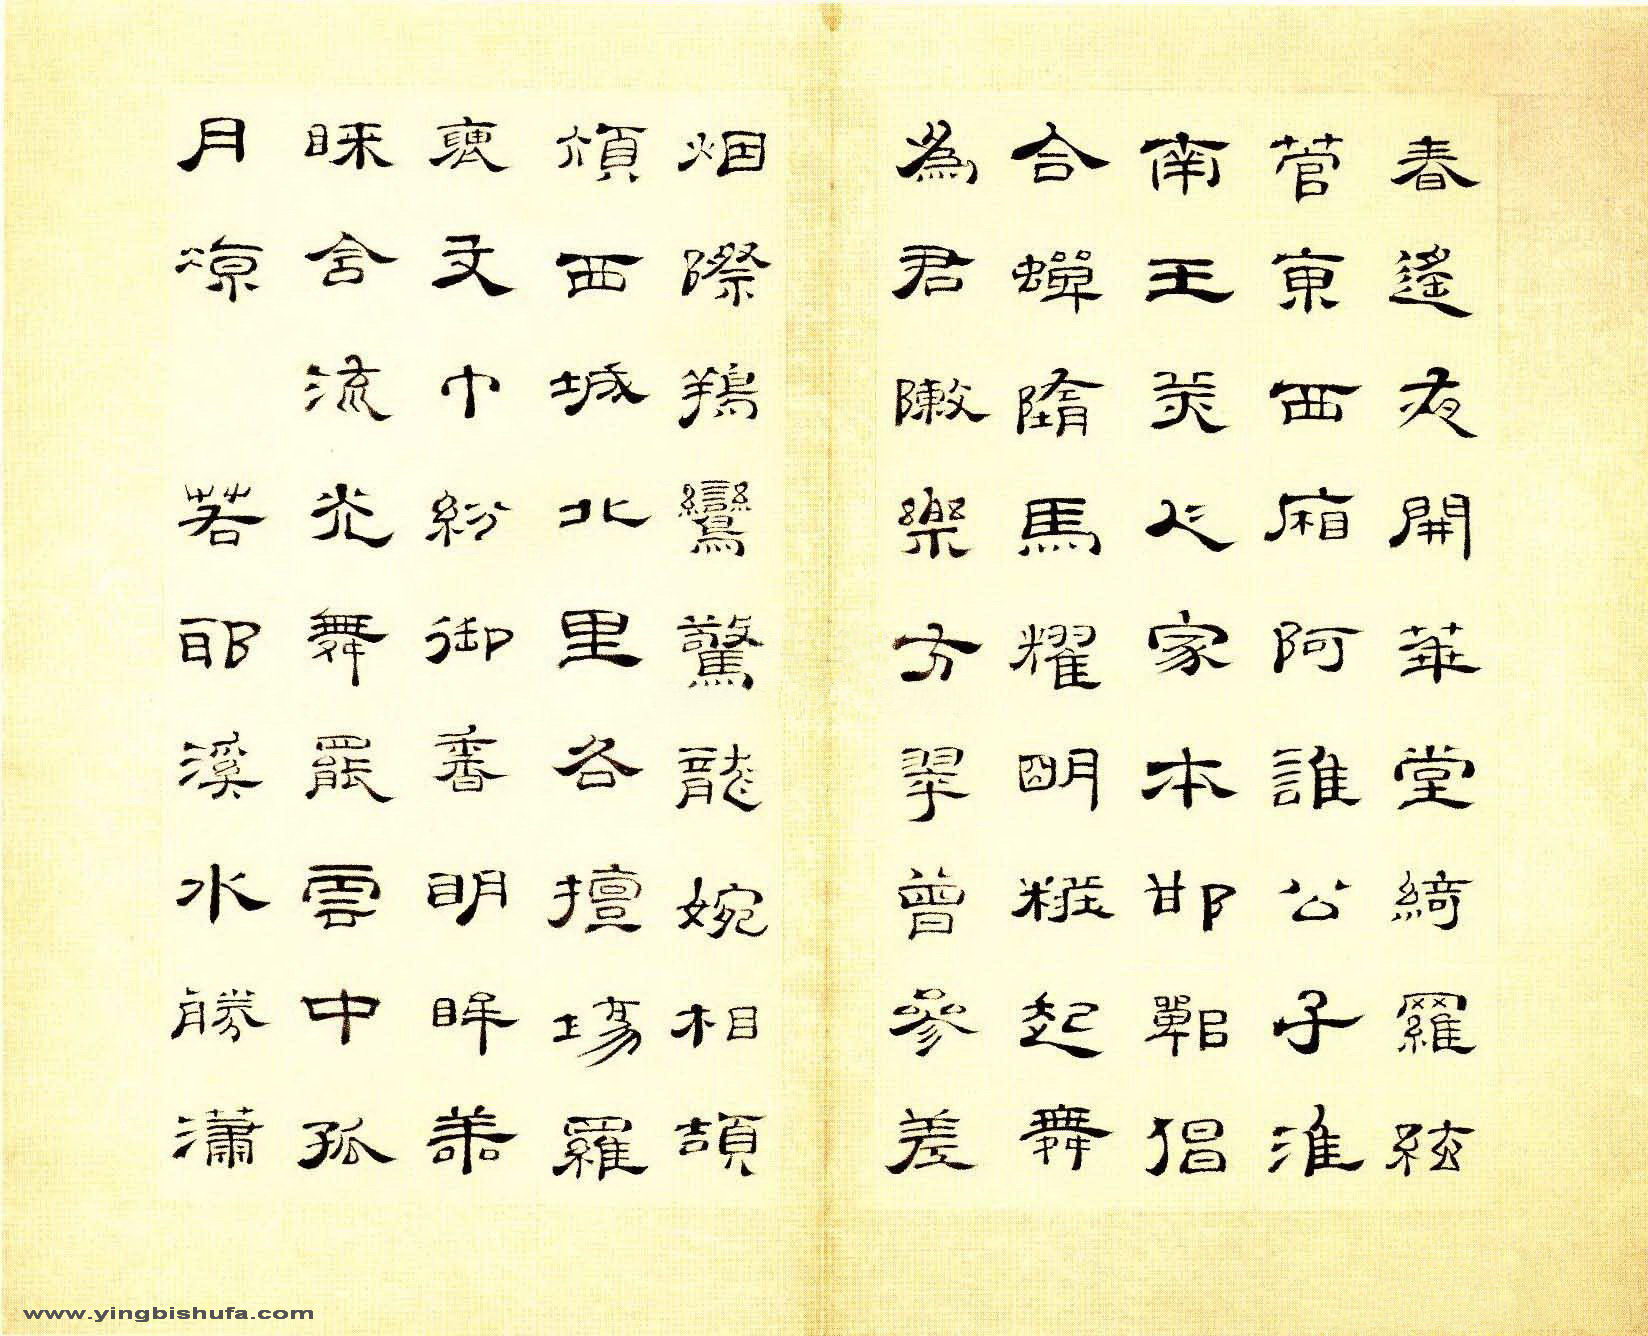 春遙夜開華堂綺羅絃
菅東西廂阿誰公子淮
南王美人家本邯鄲倡
合蟬隋馬耀明粧起舞
為君敶樂方翠曾參差
烟際鸞驚龍婉相頡
頏西城北里各擅場羅
文巾紛御香明眸善
睞含流光舞罷雲中孤
月涼 若耶溪水勝瀟
www.yingbishufa.com